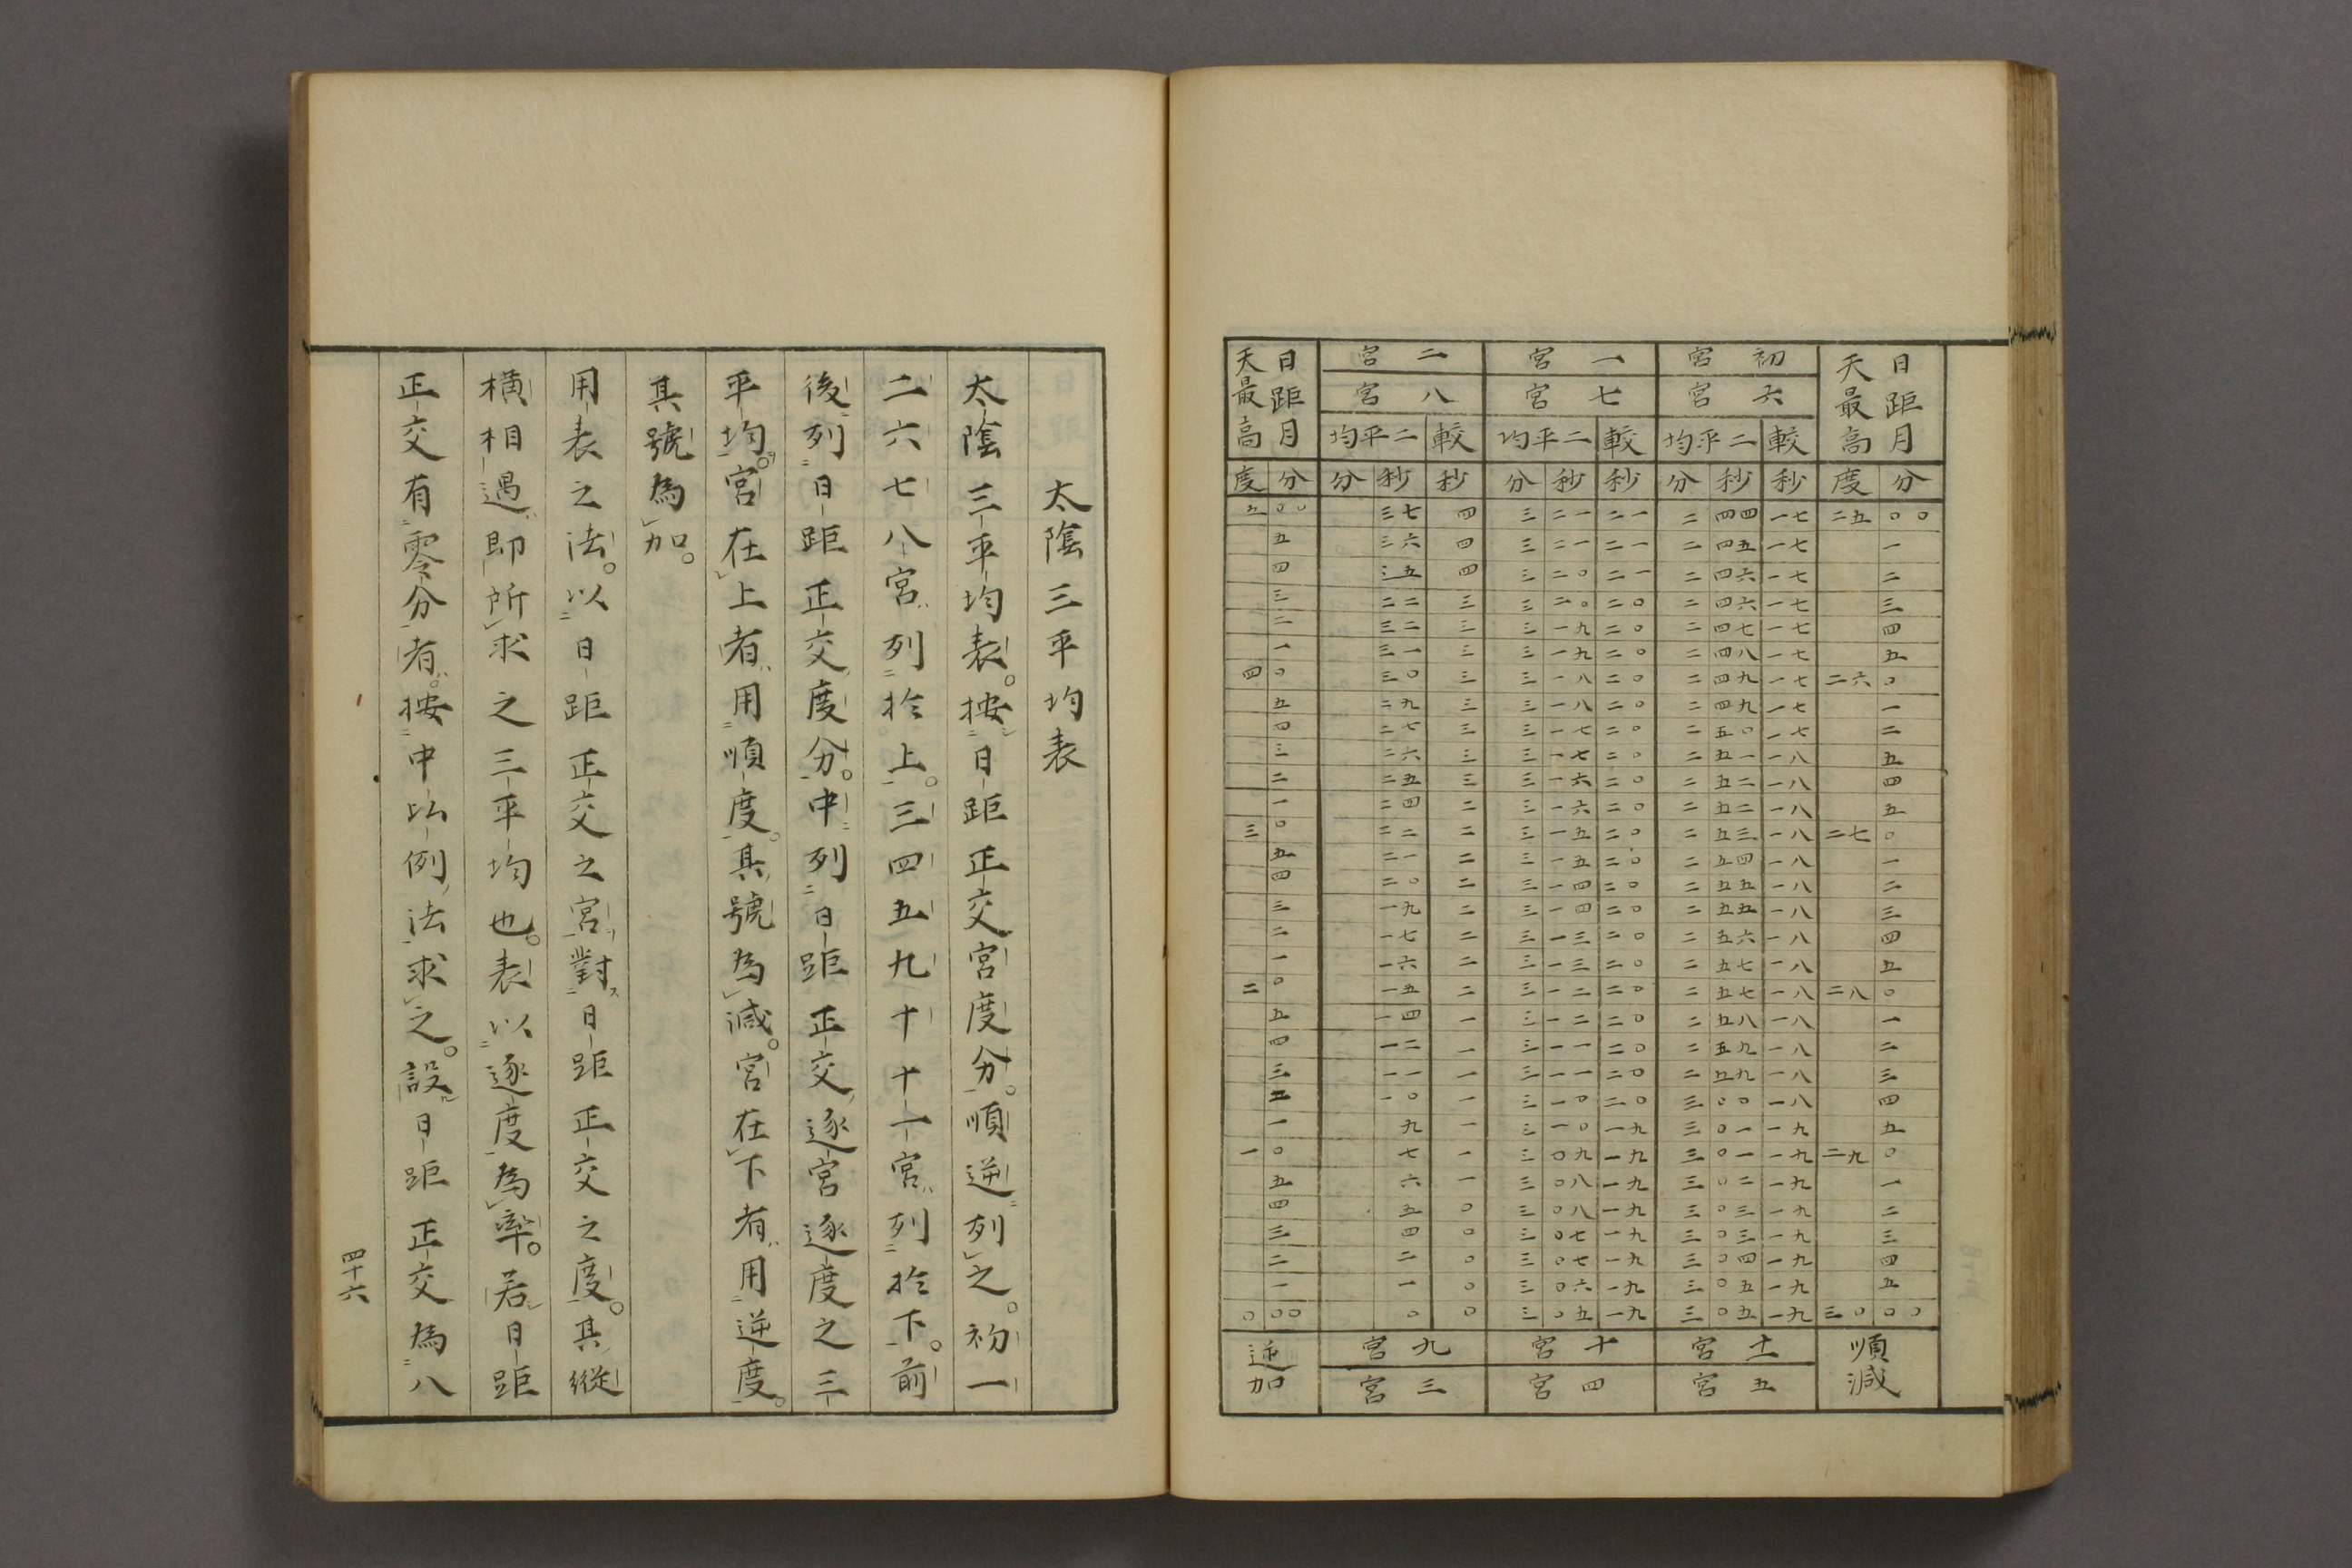 日距月天最高
初宮 一宮 二宮
六宮 七宮 八宮
日距月天最高
二平均 較 二平均 較 二平均 較
度 分 分 秒 秒 分 秒 秒 分 秒 秒 度 分
五 〇〇 三七 四 三 二一 二一 二 四四 一七 二五 〇〇
五 三六 四 三 二一 二一 二 四五 一七 一
四 五 四 三 二〇 二一 二 四六 一七 二
三 二二 三 三 二〇 二〇 二 四六 一七 三
二 三二 三 三 一九 二〇 二 四七 一七 四
一 三一 三 三 一九 二〇 二 四八 一七 五
四 〇 三〇 三 三 一八 二〇 二 四九 一七 二六 〇
五 二九 三 三 一八 二〇 二 四九 一七 一
四 二七 三 三 一七 二〇 二 五〇 一七 二
三 二六 三 三 一七 二〇 二 五一 一八 五
二 二五 三 三 一六 二〇 二 五二 一八 四
一 二四 二 三 一六 二〇 二 五二 一八 五
三 〇 二二 二 三 一五 二〇 二 五三 一八 二七 〇
五 二一 二 三 一五 二〇 二 五四 一八 一
四 二〇 二 三 一四 二〇 二 五五 一八 二
三 一九 二 三 一四 二〇 二 五五 一八 三
二 一七 二 三 一三 二〇 二 五六 一八 四
一 一六 二 三 一三 二〇 二 五七 一八 五
二 〇 一五 二 三 一二 二〇 二 五七 一八 二八 〇
五 一四 一 三 一二 二〇 二 五八 一八 一
四 一二 一 三 一一 二〇 二 五九 一八 二
三 一一 一 三 一一 二〇 二 五九 一八 三
二 一〇 一 三 一〇 二〇 三 〇〇 一八 四
一 九 一 三 一〇 一九 三 〇一 一九 五
一 〇 七 一 三 〇九 一九 三 〇一 一九 二九 〇
五 六 一 三 〇八 一九 三 〇二 一九 一
四 五 〇 三 〇八 一九 三 〇三 一九 二
三 四 〇 三 〇七 一九 三 〇三 一九 三
二 二 〇 三 〇七 一九 三 〇四 一九 四
一 一 〇 三 〇六 一九 三 〇五 一九 五
〇 〇〇 〇 〇 三 〇五 一九 三 〇五 一九 三〇 〇〇
順減
十一宮 十宮 九宮
五宮 四宮 三宮
逆加
太陰三平均表
太陰三平均表。按日距正交宮度分。順逆列之。初一
二六七八宮列於上。三四五九十十一宮列於下。前
後列日距正交度分。中列日距正交逐宮逐度之三
平均。宮在上者用順度。其號為減。宮在下者用逆度。
其號為加。
用表之法。以日距正交之宮對日距正交之度。其縱
橫相遇即所求之三平均也。表以逐度為率。若日距
正交有零分者。按中比例法求之。設日距正交為八
四十六